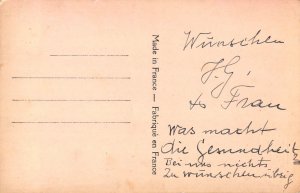 Made in France — Fabriqué en France
Wünschen
J. G.
& Frau
Was macht
die Gesundheit
Bei uns nichts
zu wünschen übrig